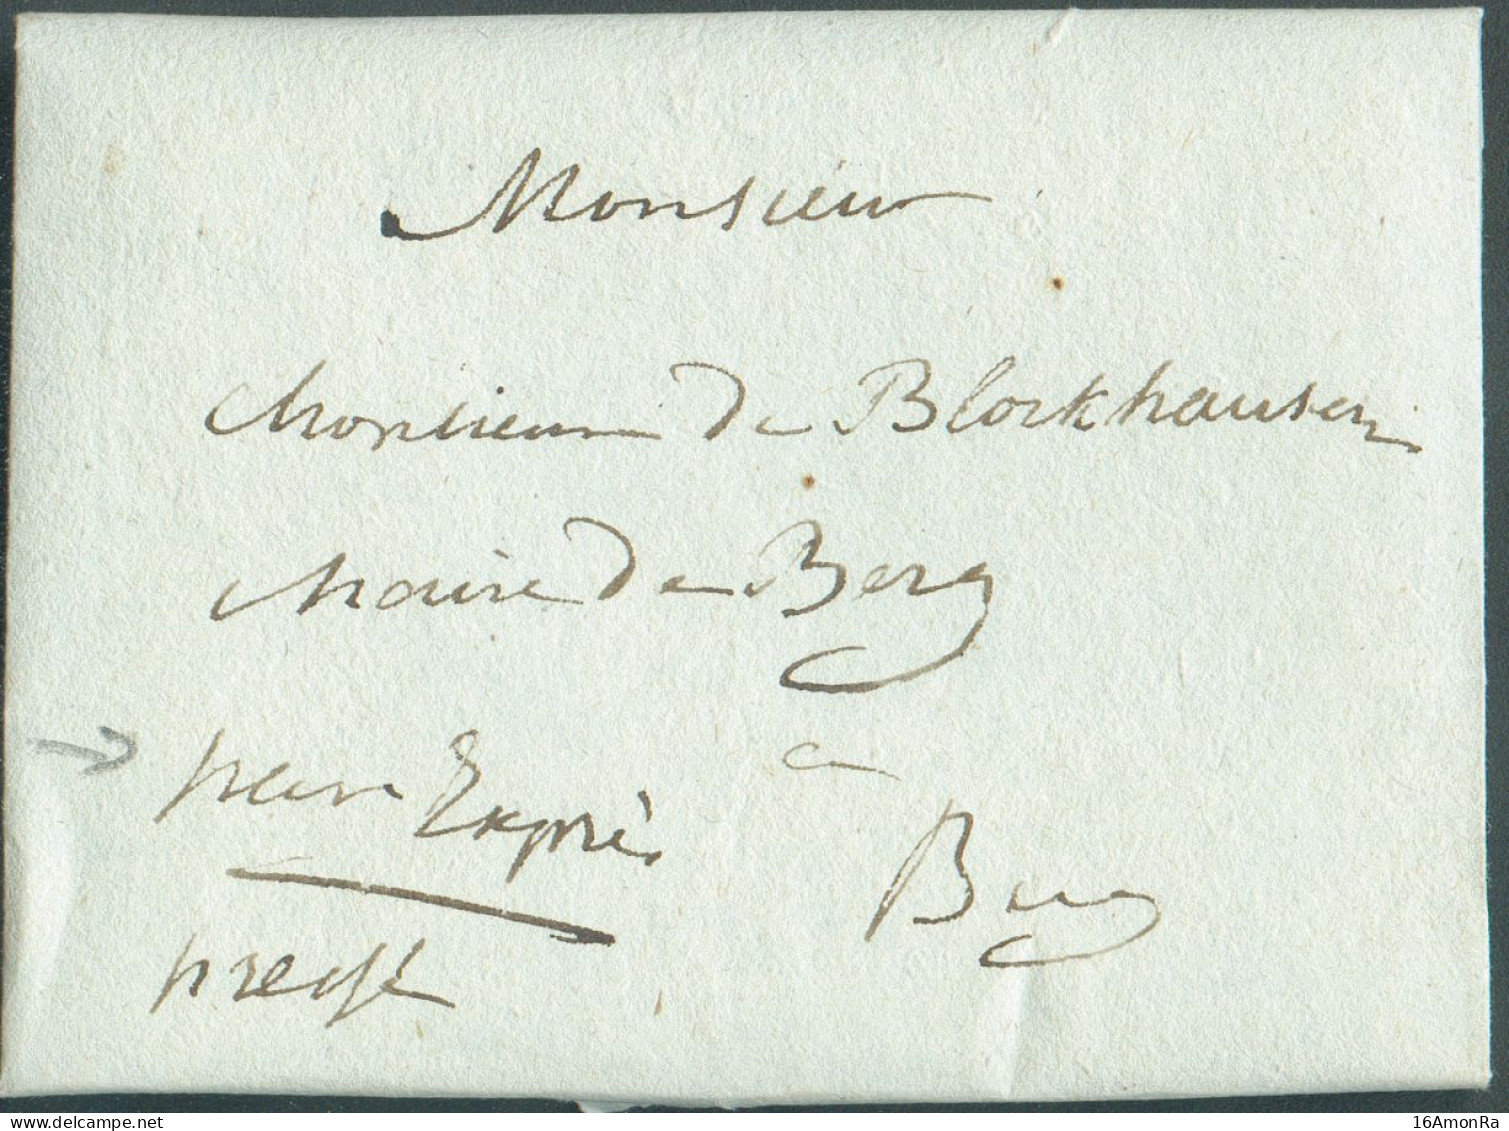 Monsieur
Monsieur de Blockhausen
Maire de Berg
a
par Exprès
Berg
pressé
16AmonRa